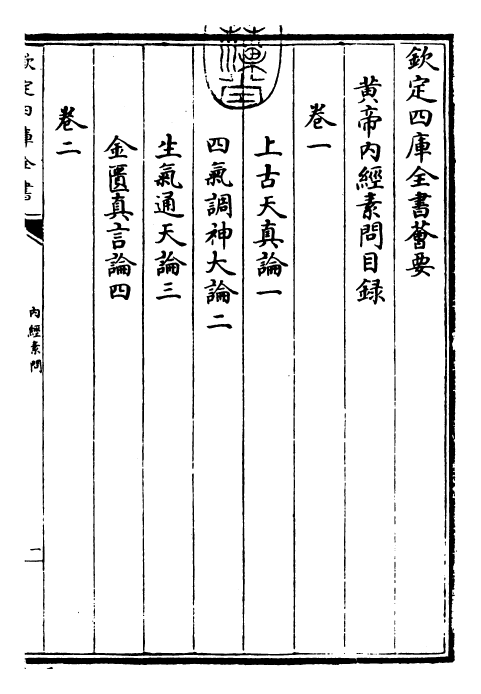 欽定四庫全書薈要
黄帝内經素問目録
卷一
上古天真論一
四氣調神大論二
生氣通天論三
金匱真言論四
卷二
欽定四庫全書
内經素問
二